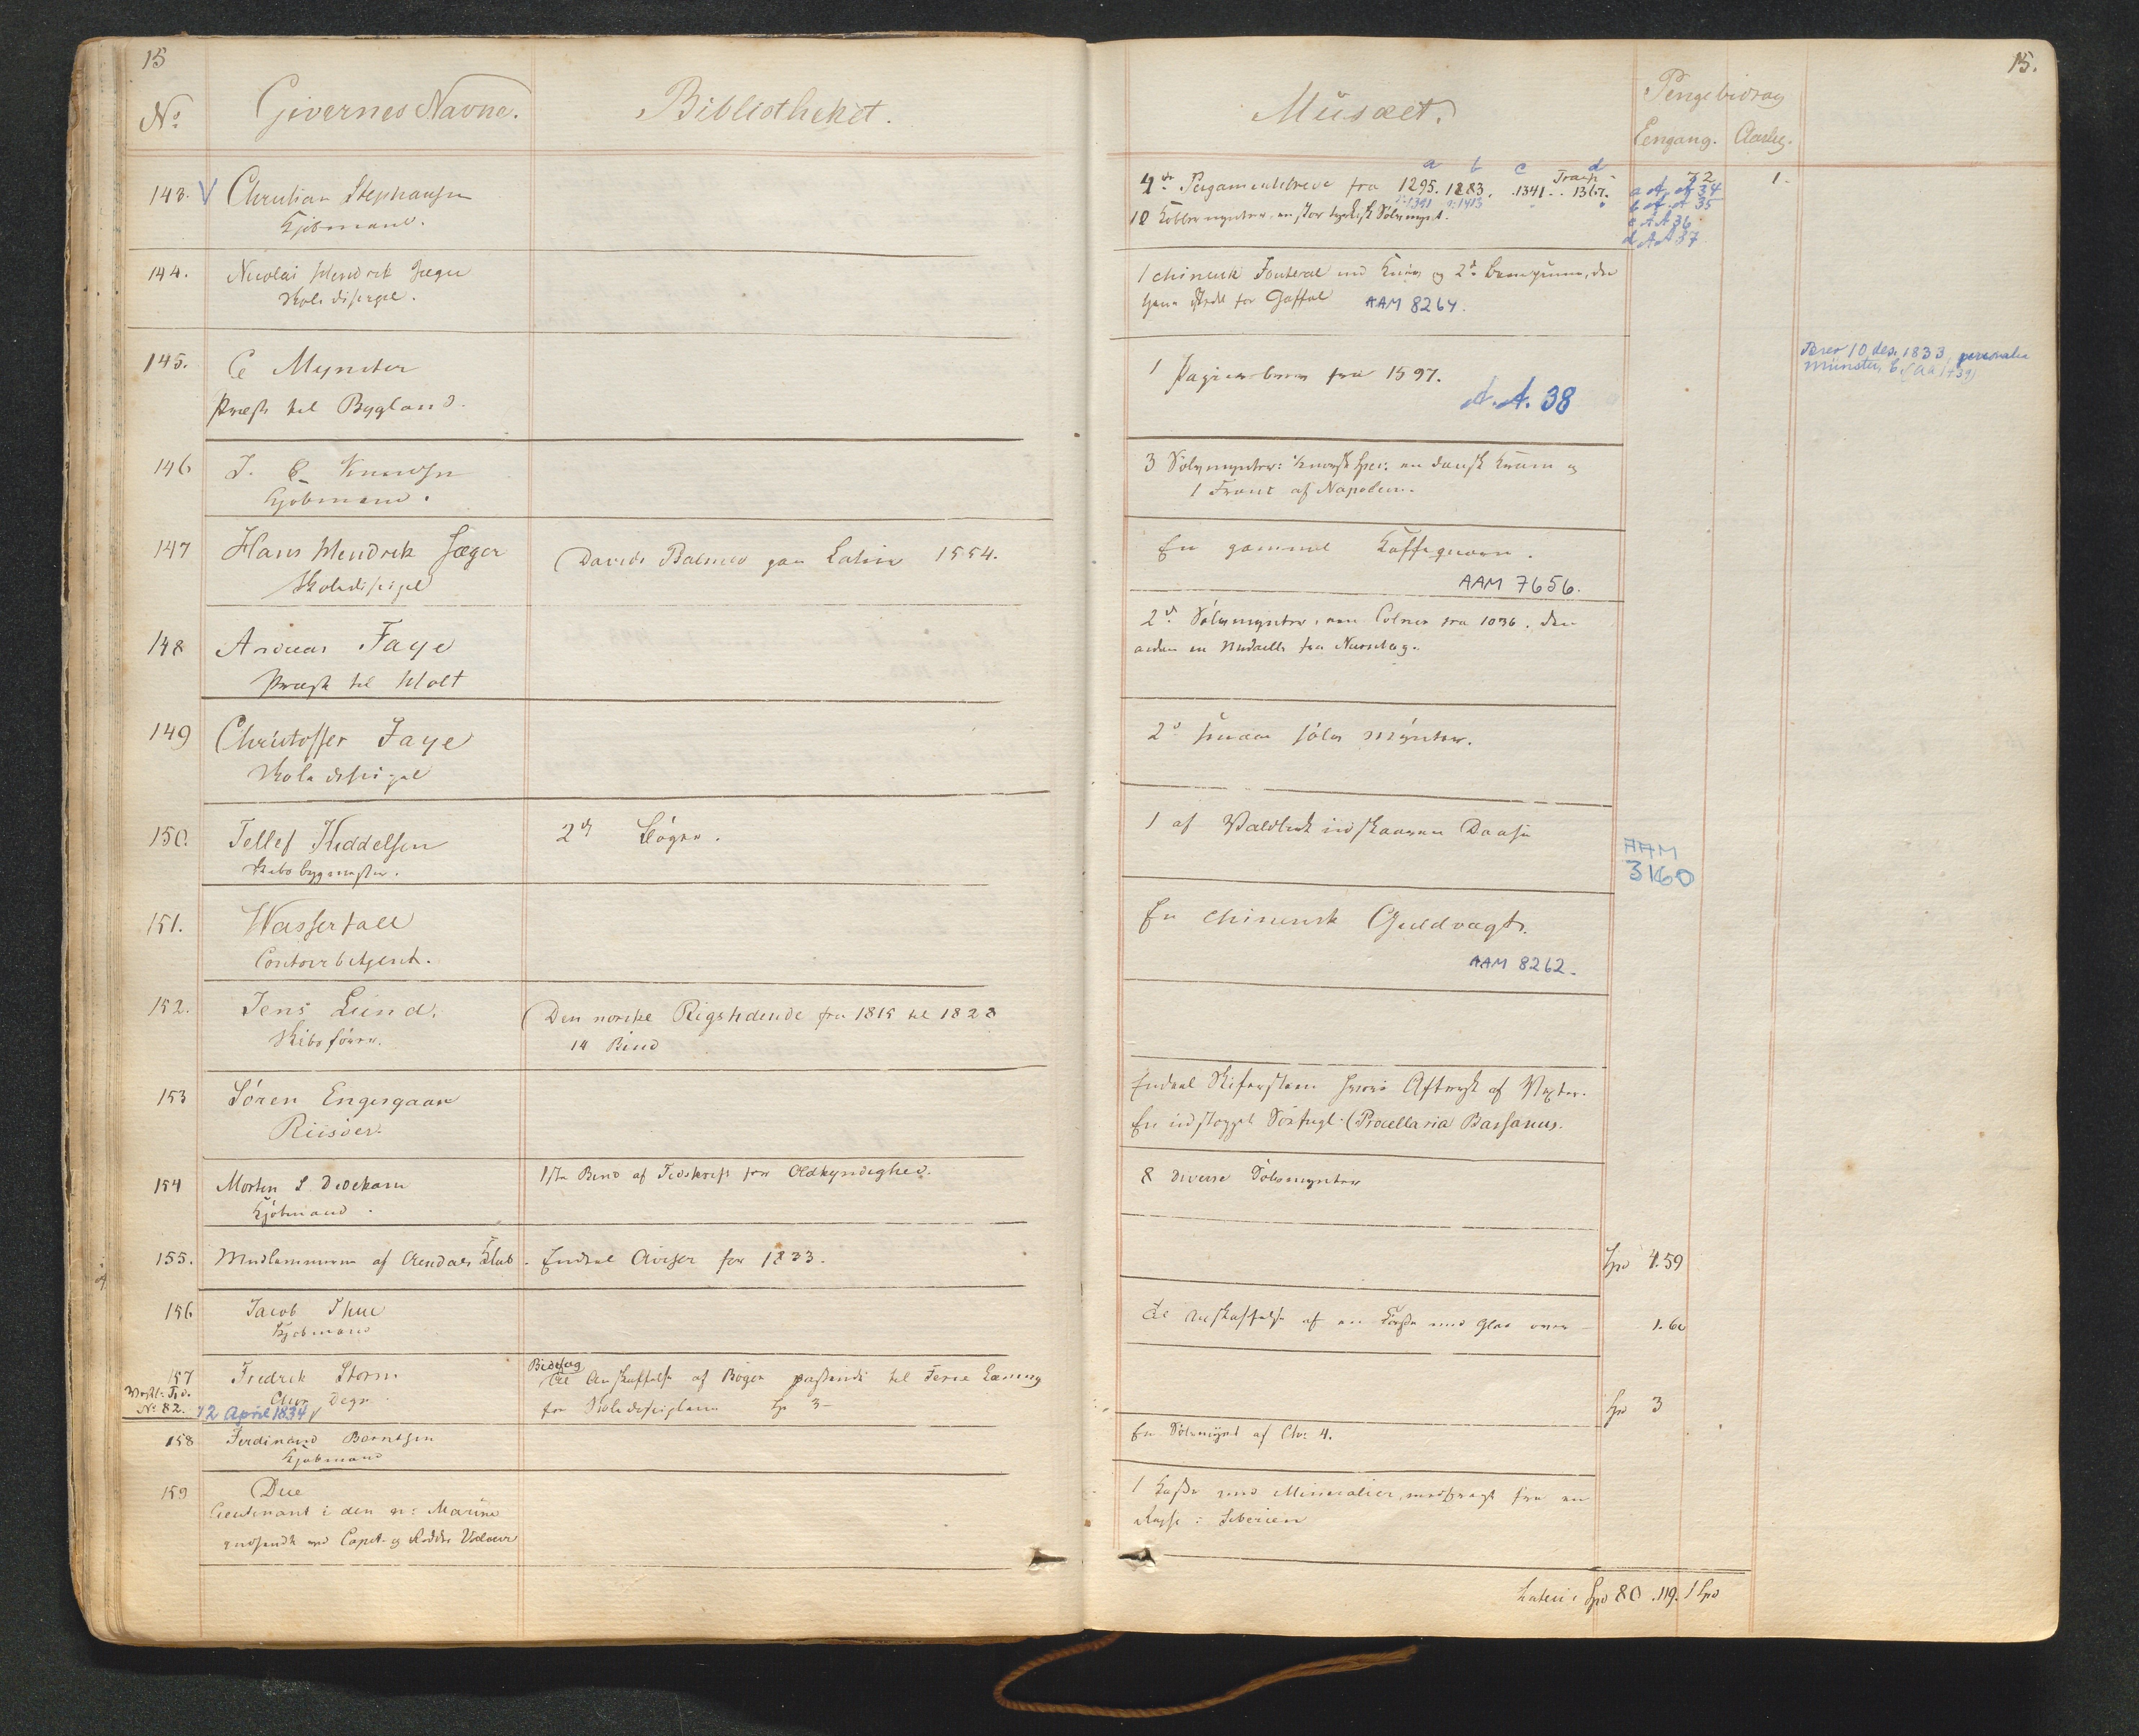 15
15.
No
Givernes Navne.
Bibliotheket.
Musæet.
Pengebidrag
Eengang. Aarlig.
143. Christian Stephansen
Kjøbmand.
a b c d
4de Pergamentsbreve fra 1295. 1283. 1341.. 1367.
ɔ: 1391 ɔ: 1413
10 Kobbermynter, en stor tyrkisk Sølvmynt.
72
1.
a A. A 34
b A. A 35
c A A 36
d A A 37
144. Nicolai Hendrik Jæger
Skoledisipel.
1 chinesisk Fouteral med Kniv og 2de Beenpinne, der
tjene istedet for Gaffel AAM 8264.
145. C Mynster
Præst til Bygland.
1 Papiersbrev fra 1597.
A. A. 38
Brev 10 des. 1833, personalia
Münster, C. (AA 1739)
146 J. C. Knudsen
Kjøbmand.
3 Sølvmynter: ½ norsk Spec. en dansk Krone og
1 Franc af Napoleon.
147 Hans Hendrik Jæger
Skoledisipel
Davids Psalmer paa Latin 1554.
En gammel Kaffeqværn.
AAM 7656.
148 Andreas Faye
Præst til Holt
2de Sølvmynter, een Colner fra 1036. den
anden en Medaille fra Nürnberg.
149 Christoffer Faye
Skoledisipel
2de smaae sølv mynter.
150. Tellef Heddelsen
Skibsbygmester.
2de Bøger.
1 af Valdbirk indskaaren Daase
AAM
3160
151. Wasserfall
Contoirbetjent.
En chinesisk Guldvægt.
AAM 8262.
152. Jens Lund.
Skibsfører.
Den norske Rigstidende fra 1815 til 1828
14 Bind
153 Søren Engesgaar
Riisøer.
Endeel Skifersteen hvori Aftryk af Vexter.
En udstoppet Søefugl. (Procellaria Bassanus.
154 Morten S. Dedekam
Kjøbmand.
1ste Bind af Tidskrift for Oldkyndighed.
8 diverse Sølvmynter
155. Medlemmerne af Arendals Klub.
Endeel Aviser for 1833.
Spd 4.59
156 Jacob Thue
Kjøbmand
Til Anskaffelse af en Kasse med Glas over
1.60
157 Fredrik Storm
Vestl. Tid.
No 82.
2 April 1834
Chor Degn
Bidrag
til Anskaffelse af Bøger passende til Ferie Læsning
for Skoledisiplene Sp 3-
Spd 3
158 Ferdinand Berntsen
Kjøbmand
En Sølvmynt af Chr: 4.
159 Due
Lieutenant i den n: Marine
indsendt ved Capt. og Ridder
1 Kasse med Mineralier, medbragt fra en
Reise i Siberien
Latus: Spd 80.119. 1 Spd